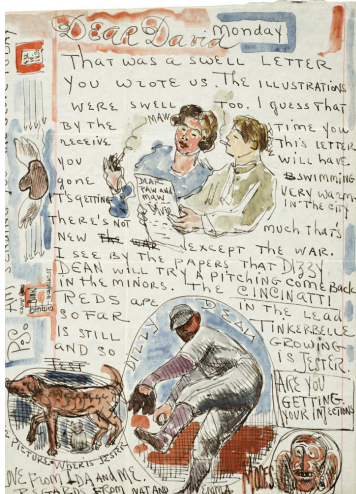 DEAR David
Monday
THAT WAS A SWELL LETTER
YOU WROTE US THE ILLUSTRATIONS
WERE SWELL TOO. I GUESS THAT
BY THE TIME YOU
RECEIVE THIS LETTER
YOU WILL HAVE
GONE SWIMMING
IT'S GETTING VERY WARM
IN THE CITY
THERE'S NOT much that's
NEW EXCEPT THE WAR.
MAW
DEAR
PAW and
MAW
I SEE BY THE PAPERS THAT DIZZY
DEAN WILL TRY A PITCHING COME BACK
IN THE MINORS. THE CINCINATTI
REDS ARE IN THE LEAD
SO FAR TINKERBELLE
IS STILL GROWING
AND SO IS JESTER.
ARE YOU
GETTING
YOUR INJECTIONS
DIZZY DEAN
PICTURE WHERE IS JESTER
LOVE FROM IDA AND ME.
REGARDS FROM NAT AND EMMA
MOSES